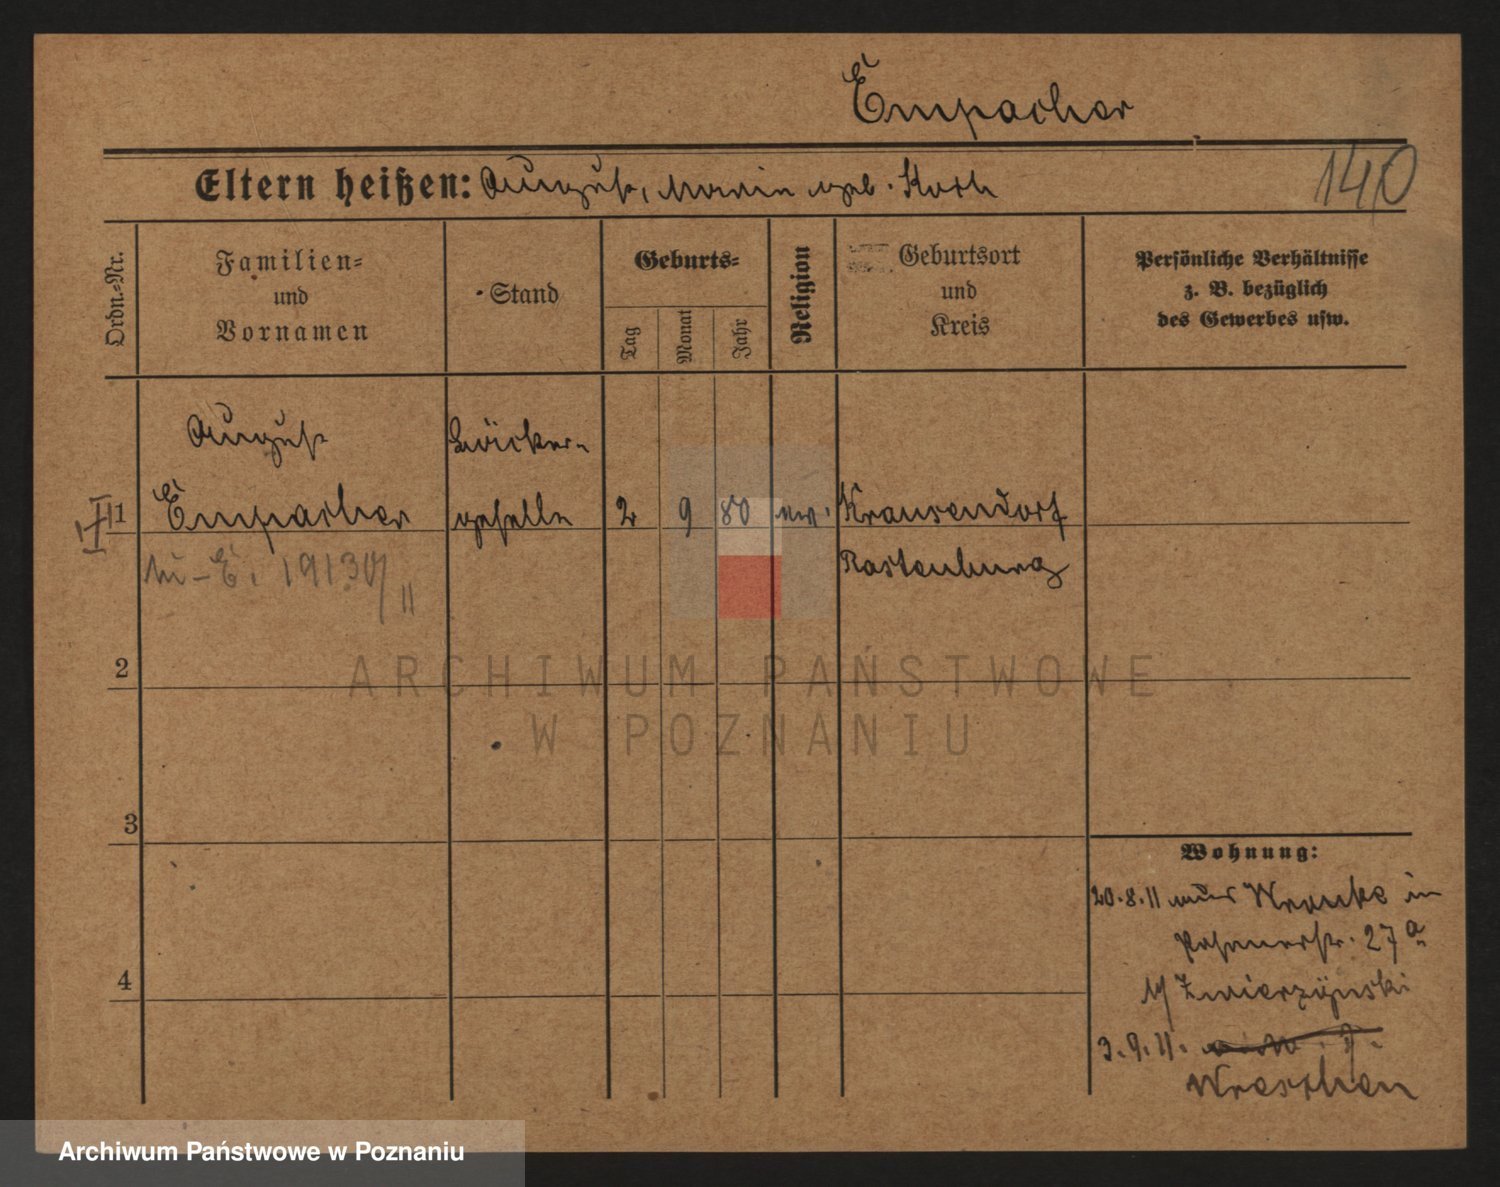 Empacher
140
Eltern heißen: August, Marie geb. Koch
Ordn.-Nr.
Familien-
und
Vornamen
Stand
Geburts-
Tag
Monat
Jahr
Religion
Geburtsort
und
Kreis
Persönliche Verhältnisse
z. B. bezüglich
des Gewerbes usw.
August
Bäcker-
1
Empacher
geselle
2
9
80
ev.
Krausendorf
Rastenburg
2
ARCHIWUM PAŃSTWOWE
W POZNANIU
3
Wohnung:
20.8.11 aus Wronke in
Posenerstr. 27a
b/ Zwierzynski
4
3.9.11.
Wreschen
Archiwum Państwowe w Poznaniu